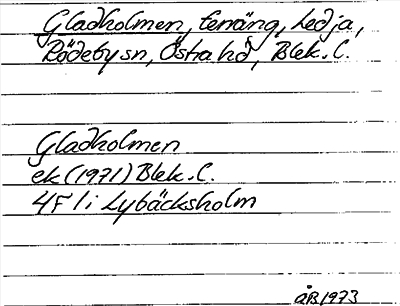 Gladholmen, terräng, Ledja,
Rödebysn, Östra hd, Blek. l.
Gladholmen
ek (1971) Blek. l.
4F 1i Lybäcksholm
ÅB 1973